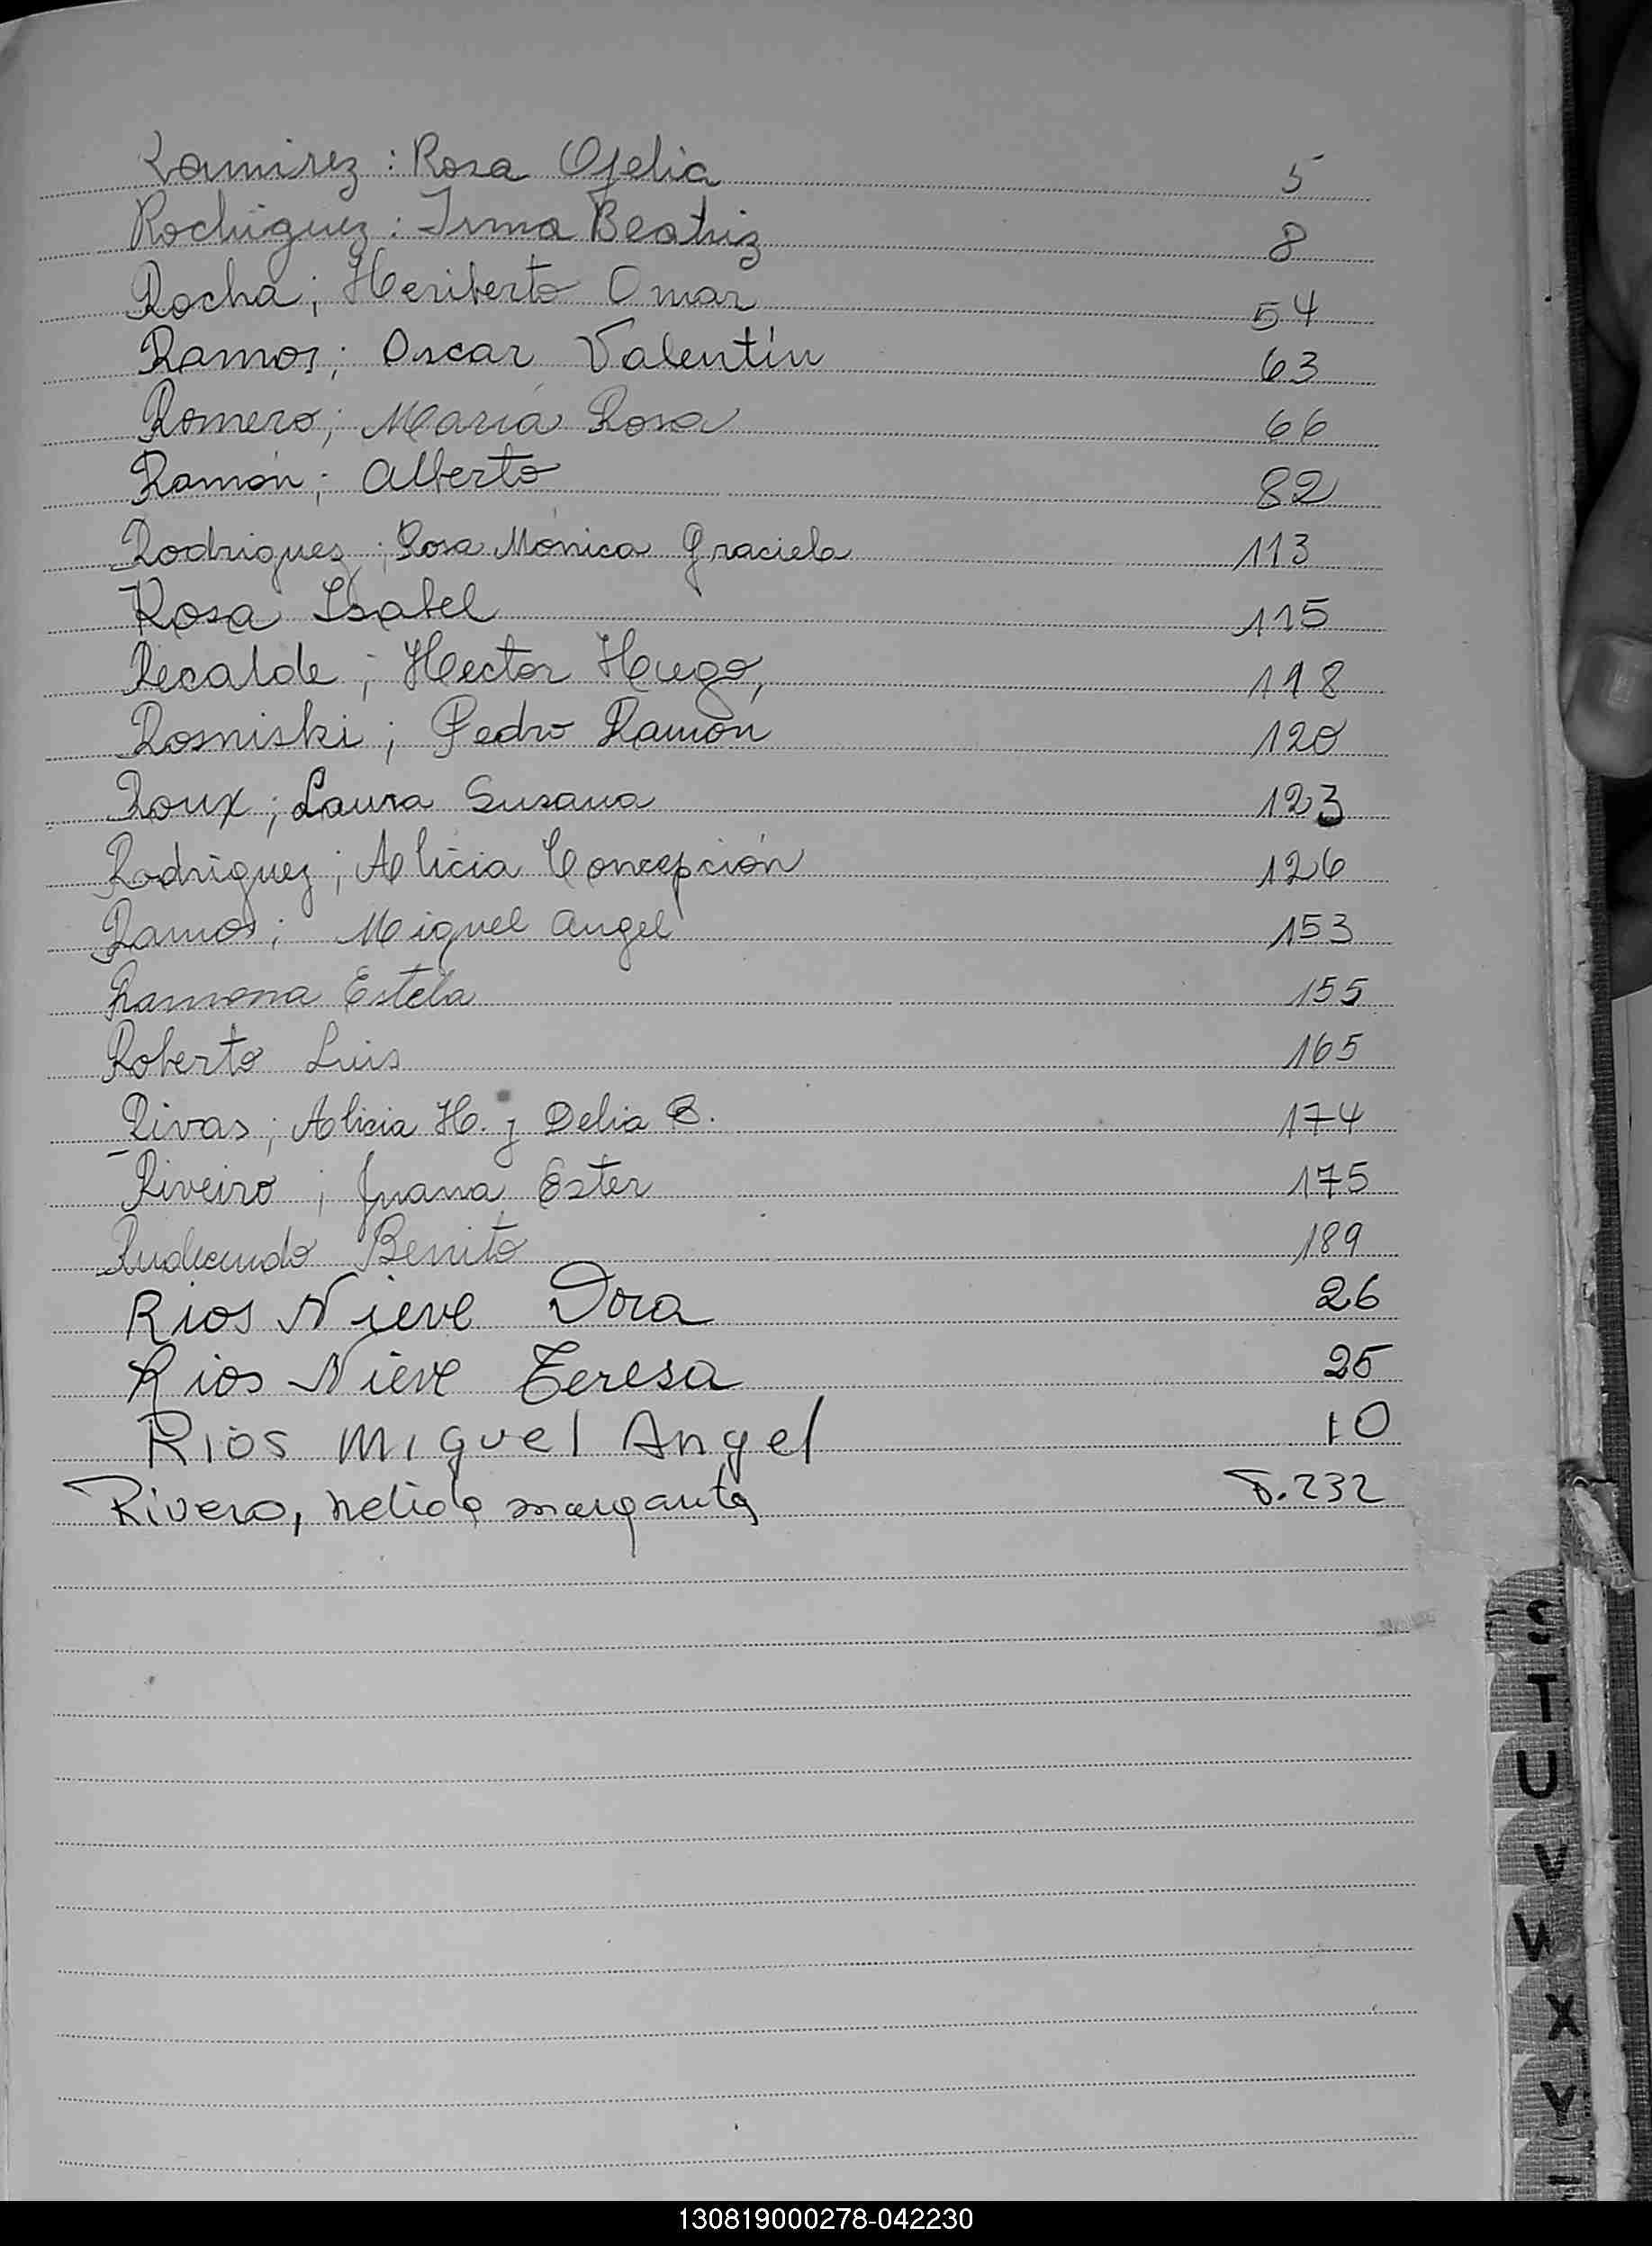 Ramirez : Rosa Ofelia 5
Rodriguez : Irma Beatriz 8
Rocha ; Heriberto Omar 54
Ramos ; Oscar Valentín 63
Romero ; María Rosa 66
Ramón ; Alberto 82
Rodriguez ; Rosa Mónica Graciela 113
Rosa Isabel 115
Recalde ; Hector Hugo, 198
Rosniski ; Pedro Ramón 120
Roux ; Laura Susana 123
Rodriguez ; Alicia Concepción 126
Ramos ; Miguel Angel 153
Ramona Estela 155
Roberto Luis 165
Rivas ; Alicia H. y Delia B. 174
Riveiro ; Juana Ester 175
Benito 189
Rios Nieve Dora 26
Rios Nieve Teresa 25
Rios Miguel Angel 10
Rivero, nelida margarita 232
S
T
U
V
W
X
Y
130819000278-042230